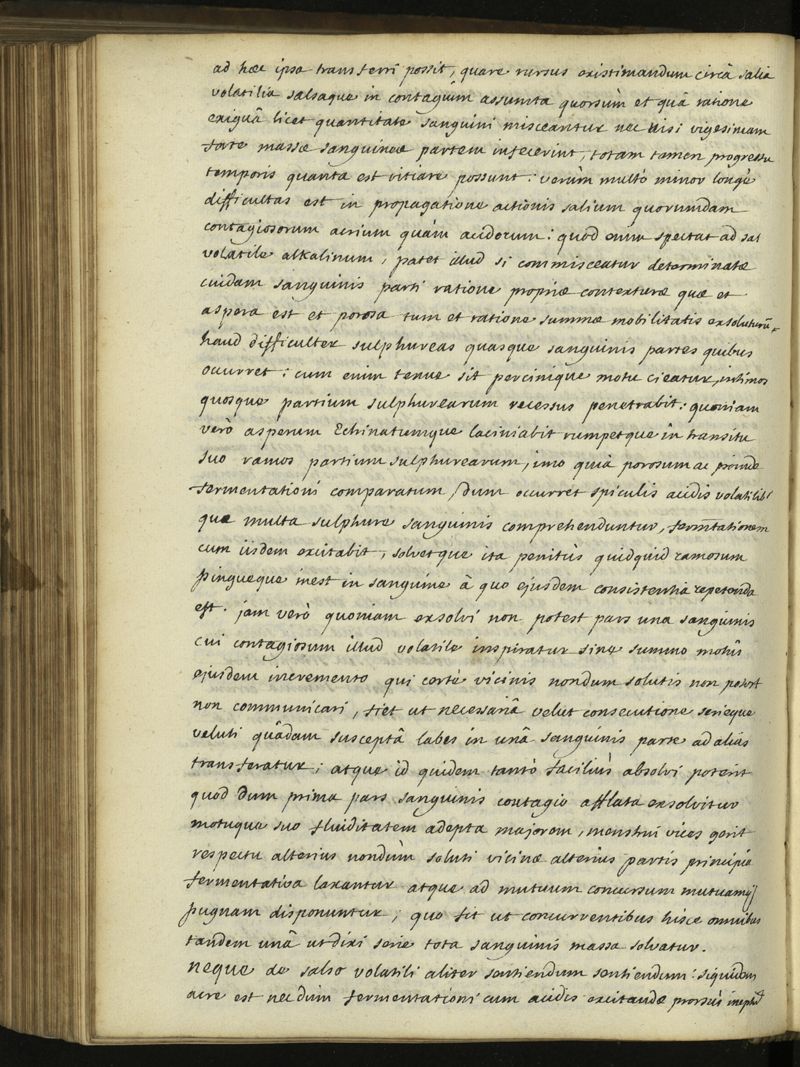 ad hæc ipsa transferri possit, quare rursus existimandum circà salia
volatilia salsaque in contagium assumta quorsùm et quâ ratione
exiguâ licet quantitate sanguini misceantur nec nisi vigesimam
forte massæ sanguineæ partem infecerint, totam tamen progressu
temporis quanta est vitiare possunt: verùm multò minor longè
difficultas est in propagatione actionis salium quorumdam
contagiosorum acrium quàm acidorum: quod enim spectat ad sal
volatile alkalinum, patet illud si commisceatur determinatæ
cuidam sanguinis parti ratione propriæ contexturæ quæ et
aspera est et porosa tum et ratione summæ mobilitatis exsoluturũ
haud difficulter sulphureas quasque sanguinis partes quibus
occurret: cum enim tenue sit pernicique motu cieatur, intimos
quosque partium sulphurearum recessus penetrabit: quoniam
verò asperum Echinatumque laciniabit rumpetque in transitu
suo ramos partium sulphurearum, imo quià porosum ac proinde
fermentationi comparatum, dum occurret spiculis acidis volatilib'
quæ multa sulphure sanguinis comprehenduntur, fermtationem
cum iisdem excitabit, solvetque ita penitùs quidquid ramosum
pingueque inest in sanguine â quo ejusdem consistentia repetenda
est. jam verò quoniam exsolvi non potest pars una sanguinis
cui contagiosum illud volatile inspiratur sine summo motûs
ejusdem incremento qui certè vicinis nondum solutis non potest
non communicari, fiet ut necessariâ velut consecutione serieque
veluti quâdam susceptâ labes in unâ sanguinis parte ad alias
transferatur; atque id quidem tantò faciliùs absolvi poterit
quod dum prima pars sanguinis contagio afflata exsolvitur
motuque suo fluiditatem adepta majorem, menstrui vices gerit
respectu alterius nondùm soluti vicinæ alterius partis principia
fermentativa laxantur atque ad mutuum concursum mutuamq
pugnam disponuntur; quo fit ut concurrentibus hisce omnibus
tandem unâ ut dixi serie tota sanguinis massa solvatur.
neque de salso volatili aliter sentiendum sentiendum: siquidem
acre est nec dum fermentationi cum acidis excitandæ prorsùs